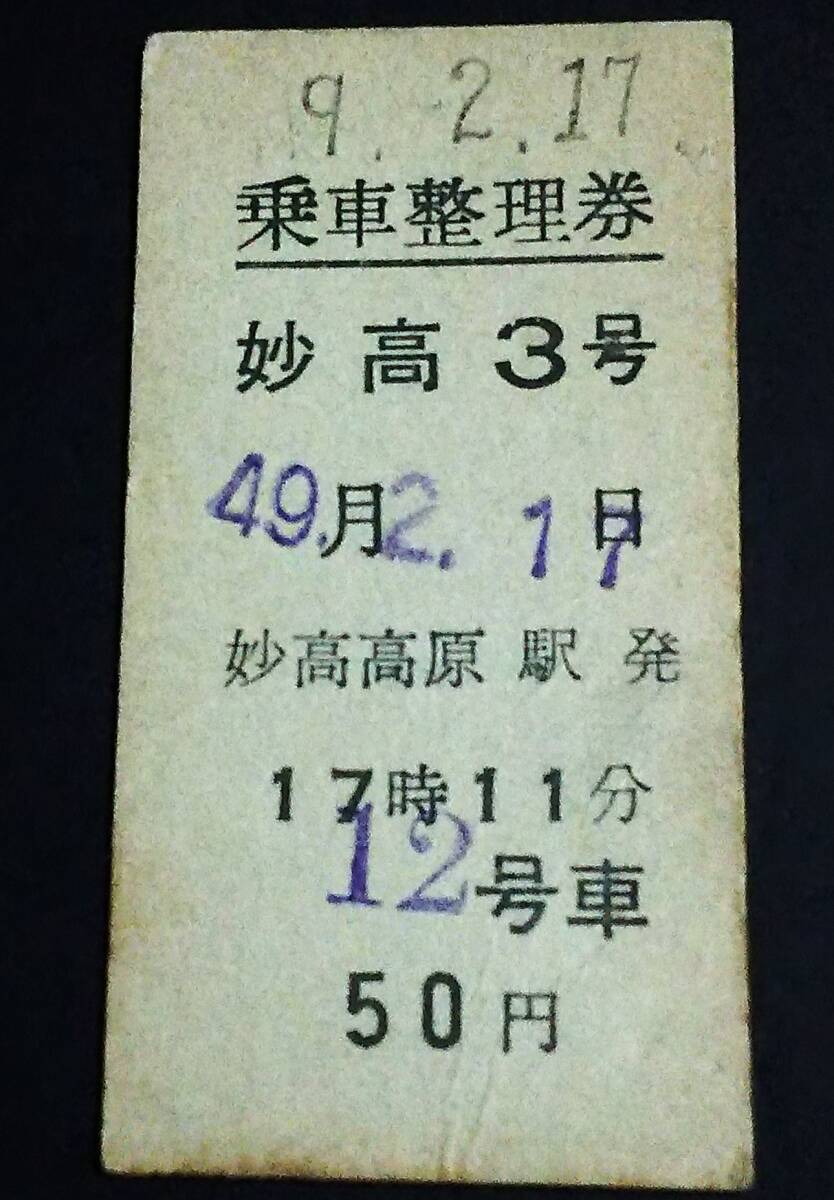 9. 2.17
乗車整理券
妙高3号
49.月2. 17日
妙高高原駅発
17時11分
12号車
50円